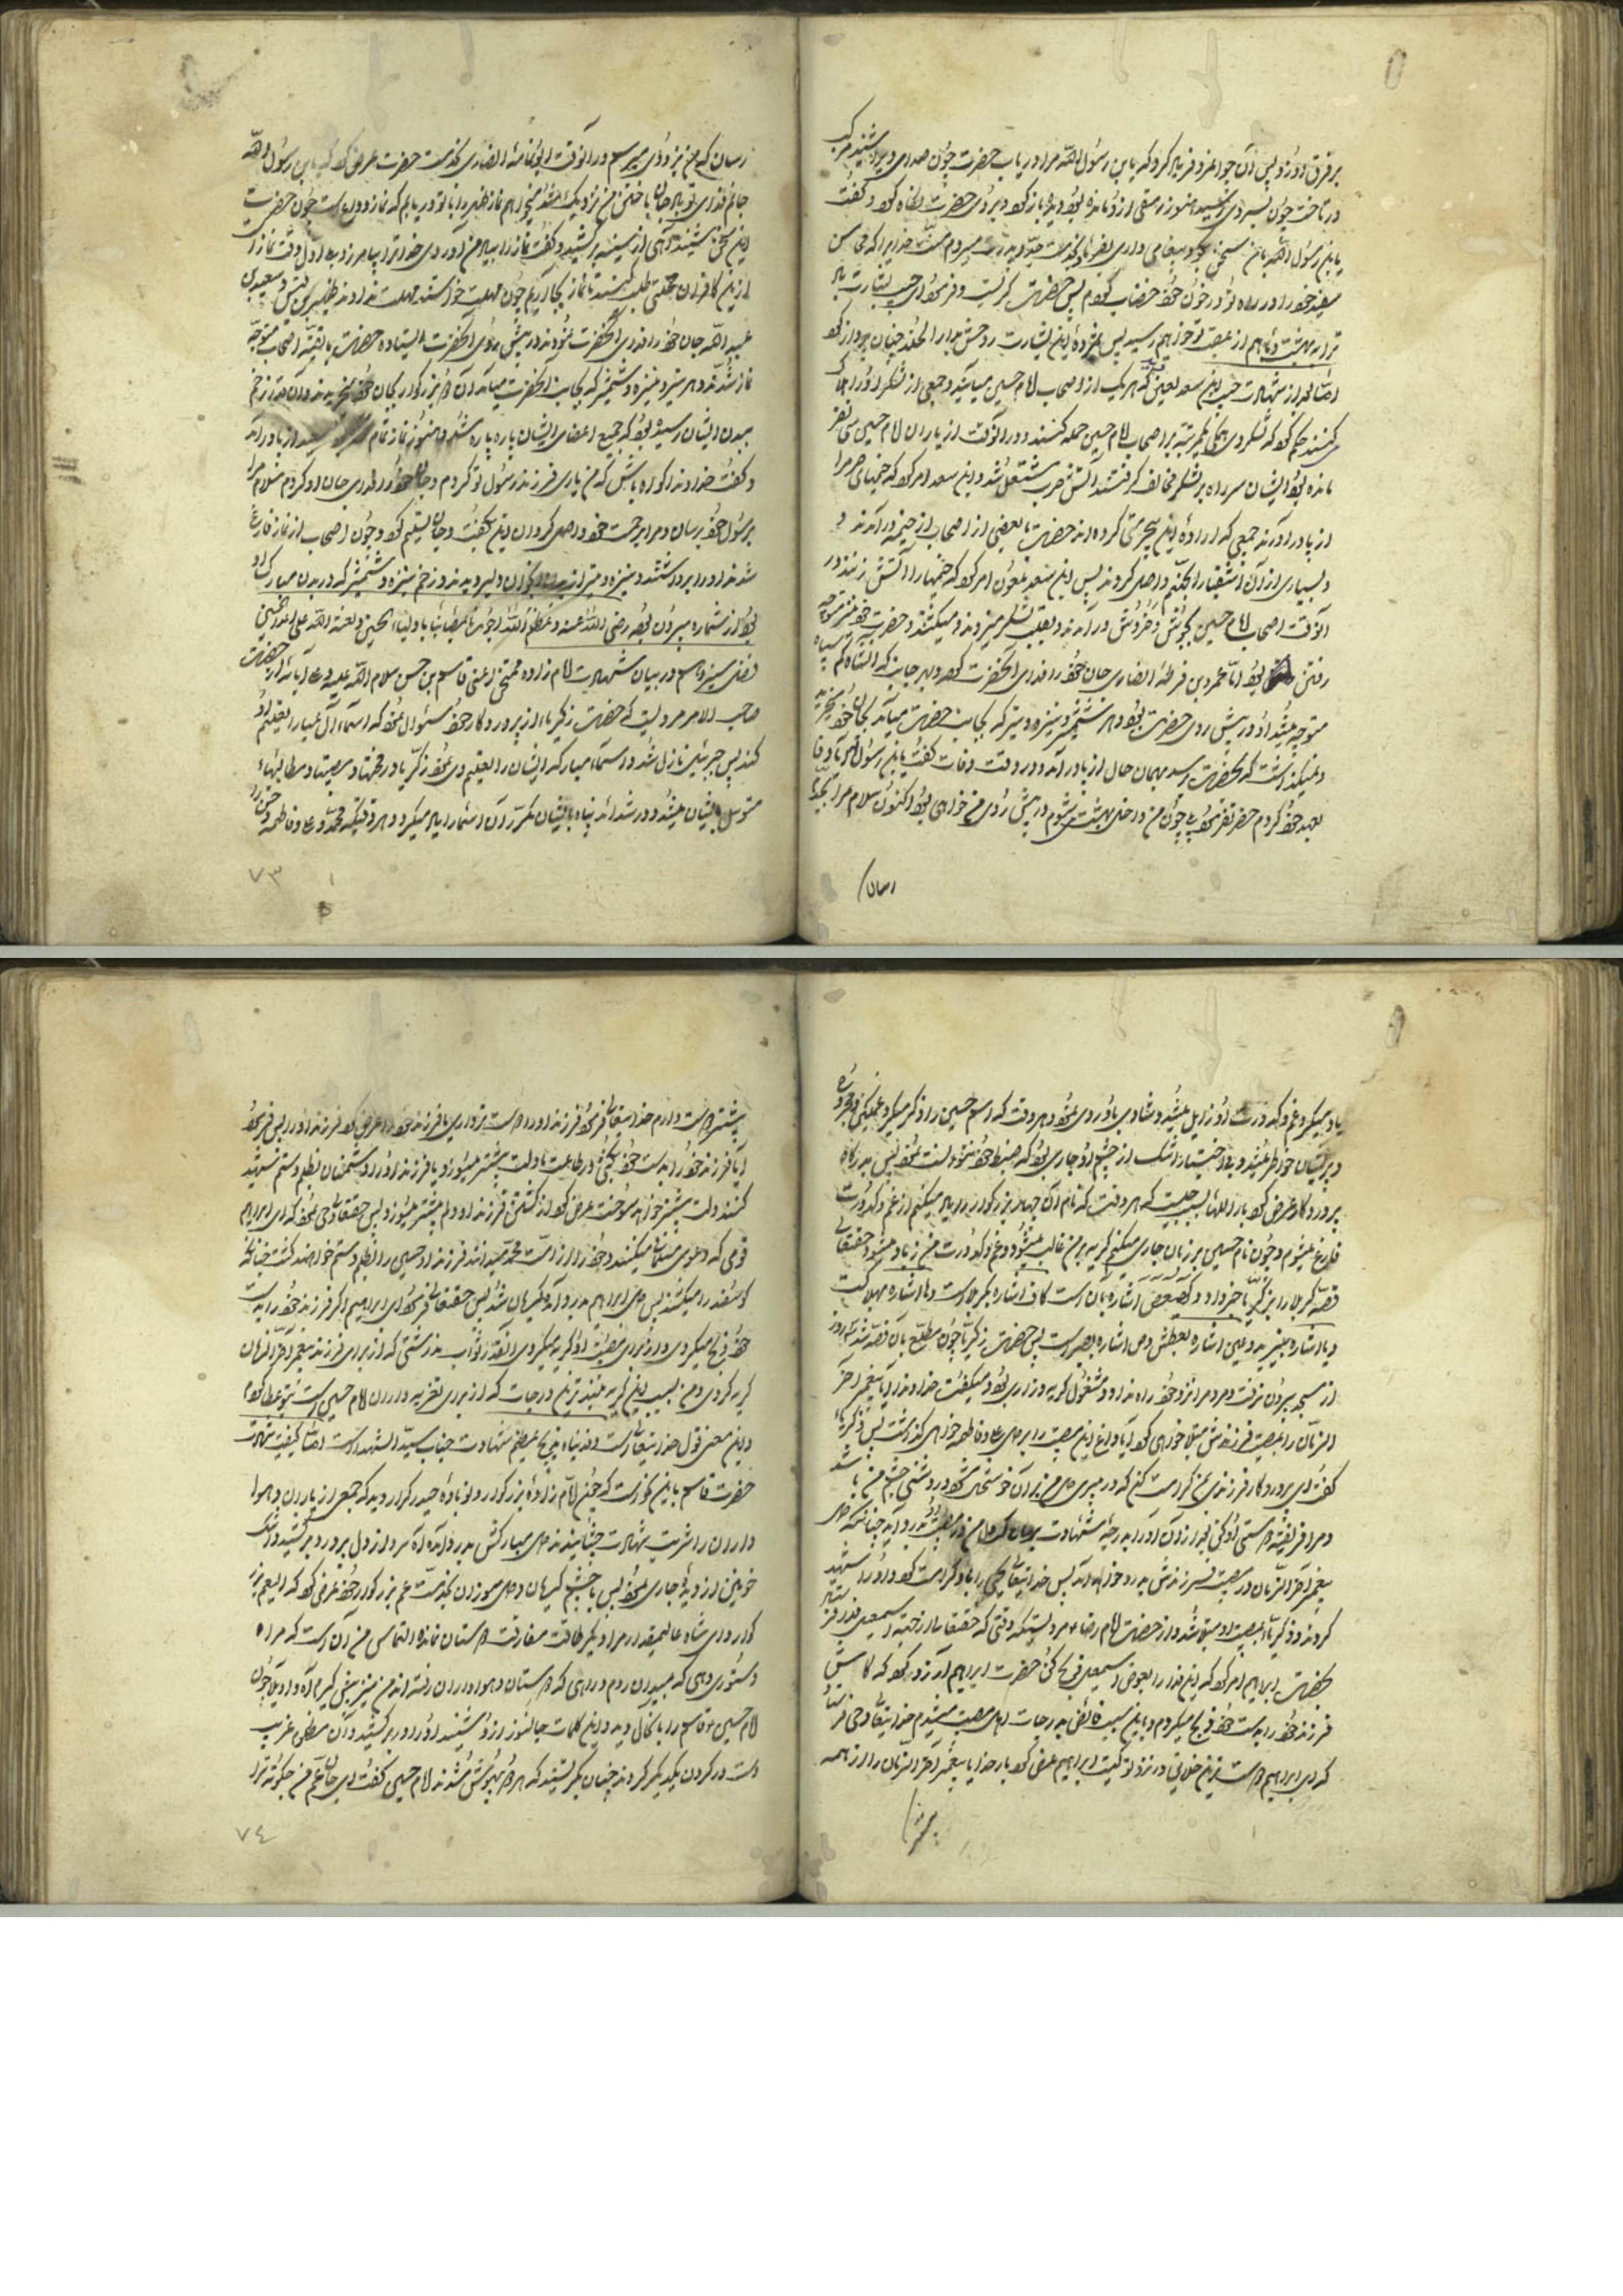 بر فرق او زد پس آن جوانمرد فریاد کرد که یابن رسول الله مرا دریاب حضرت چون صدای ویرا شنید مرکب
در تاخت چون بسر وی رسید هنوز رمقی ازو مانده بود دیده باز کرد و بروی حضرت نگاه کرد و گفت
یابن رسول الله با من سخنی بگو و پیغامی داری بفرما که بخدمت جد و پدرت میروم منت خدایرا که محاسن
سفید خود را در راه تو در خون خود خضاب کردم پس حضرت گریست و فرمود ای حبیب بشارت باد
ترا به بهشت و ما هم از عقب تو خواهیم رسید پس بمژده این بشارت روحش بدار الخلد جنان پرواز کرد
اما بعد از شهادت حبیب ابن سعد لعین دید که هر یک از اصحاب امام حسین میآیند و جمعی از لشکر او را هلاک
میکنند حکم کرد که لشکر وی همگی یکمرتبه بر اصحاب امام حسین حمله کنند و در آنوقت از یاران امام حسین سی نفر
مانده بود ایشان سر راه بر لشکر مخالف گرفتند آتش حرب مشتعل شد و ابن سعد امر کرد که خیمهای حرم را
از پا در آورند جمعی که اراده این بیحرمتی کرده اند حضرت با بعضی از اصحاب از خیمه در آمدند و
بسیاری از آن اشقیا را بجهنم واصل کردند پس ابن سعد ملعون امر کرد که خیمها را آتش زنند در
آنوقت اصحاب امام حسین بجوش و خروش در آمدند و بقلب لشکر میزدند و میکشتند و حضرت خود نیز متوجه
رفتن بود اما عمرو بن قرظه انصاری جان خود را فدای آنحضرت کرده و بهر جانب که آنشاه کم سپاه
متوجه میشد او در پیش روی حضرت بود و هر شمشیر و نیزه و تیر که بجانب حضرت میآمد بجان خود میخرید
و نمیگذاشت که بحضرت رسد بهمان حال از پا در آمد و در وقت وفات گفت یابن رسول الله آیا وفا
بعهد خود کردم حضرت فرمود بلی چون من داخل بهشت شوم در پیش روی من خواهی بود اکنون سلام مرا بجدم
رسان
رسان که من نزد وی میرسم در آنوقت ابو ثمامه انصاری بخدمت حضرت عرض کرد که یابن رسول الله
جانم فدای تو باد جان باختن من نزدیک شد میخواهم نماز ظهر را با تو دریابم که نماز وداع است چون حضرت
این سخن شنید آهی از سینه بر کشید و گفت نماز را بیاد من آوردی خدا ترا بیامرزد بلی اول وقت نماز است
از این کافران مهلتی طلب کنید تا نماز بجا آریم چون مهلت خواستند مهلت ندادند ظهیر بن قیس و سعید بن
عبد الله جان خود را فدای آنحضرت نمودند در پیش روی آنحضرت ایستاده حضرت با بقیه اصحاب متوجه
نماز شدند و هر تیر و نیزه و شمشیر که بجانب آنحضرت میآمد آن دو بزرگوار بجان خود میخریدند و آن قدر زخم
ببدن ایشان رسیده بود که جمیع اعضای ایشان پاره پاره شد و هنوز نماز تمام از پا در آمد
و گفت خداوندا گواه باش که من یاری فرزند رسول تو کردم و جان خود را فدای جان او کردم سلام مرا
برسول خود برسان و مرا برحمت خود واصل گردان این بگفت و جان تسلیم کرد و چون اصحاب از نماز فارغ
شدند او را برداشتند و نیزه و تیر از بدن او بیرون کشیدند و زخم نیزه و شمشیر که در بدن مبارک او
بود از شماره بیرون بود رضی الله عنه و عظم الله اجورنا بمصابنا باولیاء الحسین و لعنة الله علی اعداء الحسین
فصل سیزدهم در بیان شهادت امام زاده ممتحن اعنی قاسم بن حسن سلام الله علیه و علی آبائه از حضرت
صاحب الامر مرویست که حضرت زکریا از پروردگار خود سئوال نمود که اسماء آل عبا را تعلیم او
کند پس جبرئیل نازل شد و اسماء مبارکه ایشان را تعلیم وی نمود زکریا در محنتها و مصیبتها و مطالبها
متوسل بایشان میشد و در شدائد پناه بایشان مکرر آن اسما را یاد میکرد و هر وقتیکه محمد و علی و فاطمه و حسن را
۷۳
یاد میکرد غم و کدورت او زایل میشد و شادی باو روی مینمود و هر وقت که اسم حسین را ذکر میکرد غمگین و محزون
و پریشان خاطر میشد و بی اختیار اشک از چشم او جاری بود که ضبط خود نتوانست نمود پس بدرگاه
پروردگار عرض کرد بار الها سبب چیست که هر وقت که نام آن چهار بزرگوار را یاد میکنم از غم و کدورت
فارغ میشوم و چون نام حسین بر زبان جاری میکنم گریه بر من غالب میشود و غم و کدورت من زیاد میشود حقتعالی
قصه کربلا را بزکریا خبر داد و کهیعص اشاره بآن است کاف اشاره بکربلاست و ها اشاره بهلاکت
و یا اشاره بیزید و عین اشاره بعطش و ص اشاره بصبر است پس حضرت زکریا چون مطلع بآن قصه شد سه روز
از مسجد بیرون نرفت و مردمرا نزد خود راه نداد و مشغول گریه و زاری بود و میگفت خداوندا آیا پیغمبر آخر
الزمان را بمصیبت فرزندش مبتلا خواهی کرد آیا داغ این مصیبت را بر دل علی و فاطمه خواهی گذاشت پس زکریا
گفت ای پروردگار فرزندی بمن کرامت کن که در پیری دل من از آن خوشحال شود و روشنی چشم من باشد
و مرا فریفته دوستی او کن بعد از آن او را بدرجه شهادت برسان که دل من در مصیبت او بدرد آید چنانکه دل
پیغمبر آخر الزمان در مصیبت فرزندش بدرد خواهد آمد پس خدایتعالی یحیی را باو کرامت کرد و او را شهید
کردند و زکریا بمصیبت او مبتلا شد و از حضرت امام رضا ع مرویستکه وقتی که حقتعالی از جنت اسمعیل فدا فرستاد
بحضرت ابراهیم امر کرد که این فدا را بعوض اسمعیل ذبح کن حضرت ابراهیم آرزو کرد که کاش
فرزند خود را بدست خود ذبح میکردم و باین سبب فائض بدرجات اهل مصیبت میشدم خدایتعالی وحی فرستاد
که ای ابراهیم دوست ترین خلایق در نزد تو کیست ابراهیم عرض کرد بار خدایا پیغمبر آخر الزمان را از همه
بیشتر
بیشتر دوست دارم خدایتعالی فرمود فرزند او را دوست تر داری یا فرزند خود را عرض کرد فرزند او را پس فرمود
آیا فرزند خود را بدست خود بکشی در طاعت ما دلت بیشتر میسوزد یا فرزند او را دشمنان بظلم و ستم شهید
کنند دلت بیشتر خواهد سوخت عرض کرد از کشتن فرزند او دلم بیشتر میسوزد پس حقتعالی وحی نمود که ای ابراهیم
قومی که دعوی مسلمانی میکنند و خود را از امت محمد میدانند فرزند او حسین را بظلم و ستم خواهند کشت چنانکه
گوسفند را میکشند پس دل ابراهیم بدرد آمد و گریان شد پس حقتعالی فرمود ای ابراهیم اگر فرزند خود را بدست
خود ذبح میکردی و از برای مصیبت او گریه میکردی آنقدر ثواب نداشتی که از برای فرزند پیغمبر آخر الزمان
گریه کردی و من بسبب این گریه بلندترین درجات که از برای تعزیه داران امام حسین است بتو عطا کردم
و این معنی قول خدایتعالی است و فدیناه بذبح عظیم شهادت جناب سید الشهداست اما کیفیت شهادت
حضرت قاسم باین نحو است که چون امام زاده بزرگوار و نوباوه حیدر کرار دید که جمعی از یاران و هوا
داران را شربت شهادت چشانیدند دل مبارکش بدرد آمده آه سرد از دل پر درد بر کشید و اشک
خونین از دیده جاری نمود پس با چشم گریان و دل سوزان بخدمت عم بزرگوار خود عرض کرد که ای عم بزر
گوار و ای شاه عالیمقدار مرا دیگر طاقت مفارقت دوستان نمانده التماس من آن است که مرا
دستوری دهی که بمیدان روم در راهی که دوستان و هواداران رفته اند من نیز پیش گیرم آه و اویلا چون
امام حسین ع قاسم را باینحال دید و این کلمات جانسوز از او شنید او را در بر کشید و آن مظلوم غریب
دست در گردن یکدیگر کردند چنان بگریستند که هر دو بیهوش شدند امام حسین گفت ای جان عم من چگونه ترا
۷٤